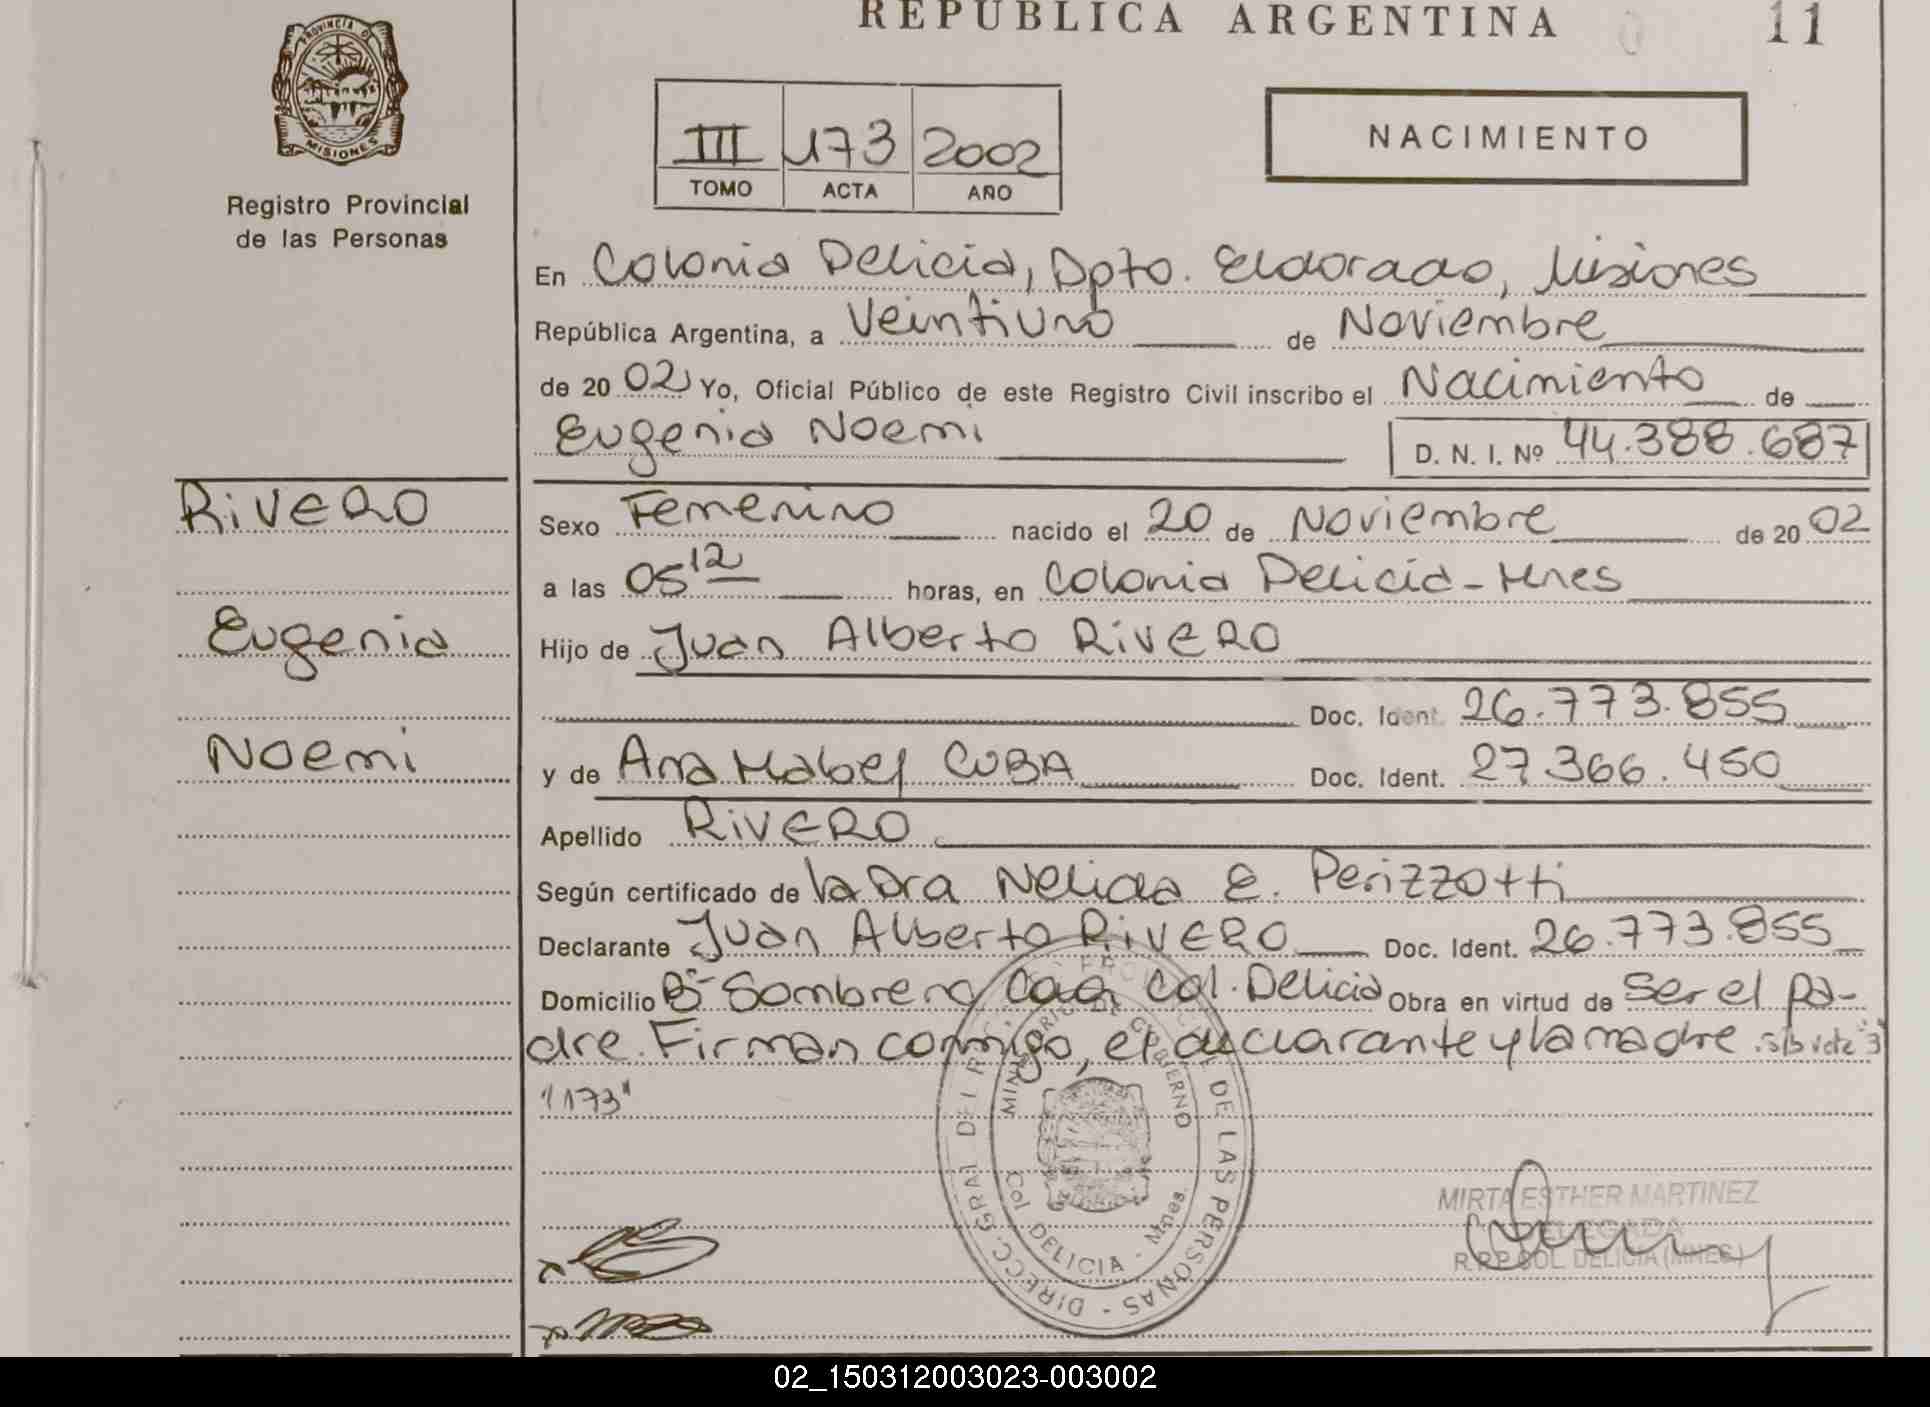 REPUBLICA ARGENTINA 11
PROVINCIA D MISIONES
Registro Provincial
de las Personas
III 173 2002
TOMO ACTA AÑO
NACIMIENTO
En Colonia Delicia, Dpto. Eldorado, Misiones
República Argentina, a Veintiuno de Noviembre
de 20 02 Yo, Oficial Público de este Registro Civil inscribo el Nacimiento de
Eugenia Noemi D. N. I. Nº 44.388.687
RIVERO
Sexo Femenino nacido el 20 de Noviembre de 20 02
a las 05 12 horas, en Colonia Delicia - Mnes
Eugenia
Hijo de Juan Alberto RIVERO
Doc. Ident. 26.773.855
Noemi
y de Ana Mabel CUBA Doc. Ident. 27.366.450
Apellido RIVERO
Según certificado de la Dra Nelida E. Perizzotti
Declarante Juan Alberto RIVERO Doc. Ident. 26.773.855
Domicilio Bº Sombrero Col. Delicia Obra en virtud de ser el pa-
dre. Firman conmigo, el declarante y la madre. s/b
"173"
DIRECC. GRAL DEL DE LAS PERSONAS
DE GOBIERNO
Col DELICIA - Mnes.
MIRTA ESTHER MARTINEZ
DELEGADA
R.P.P COL. DELICIA (MNES)
02_150312003023-003002